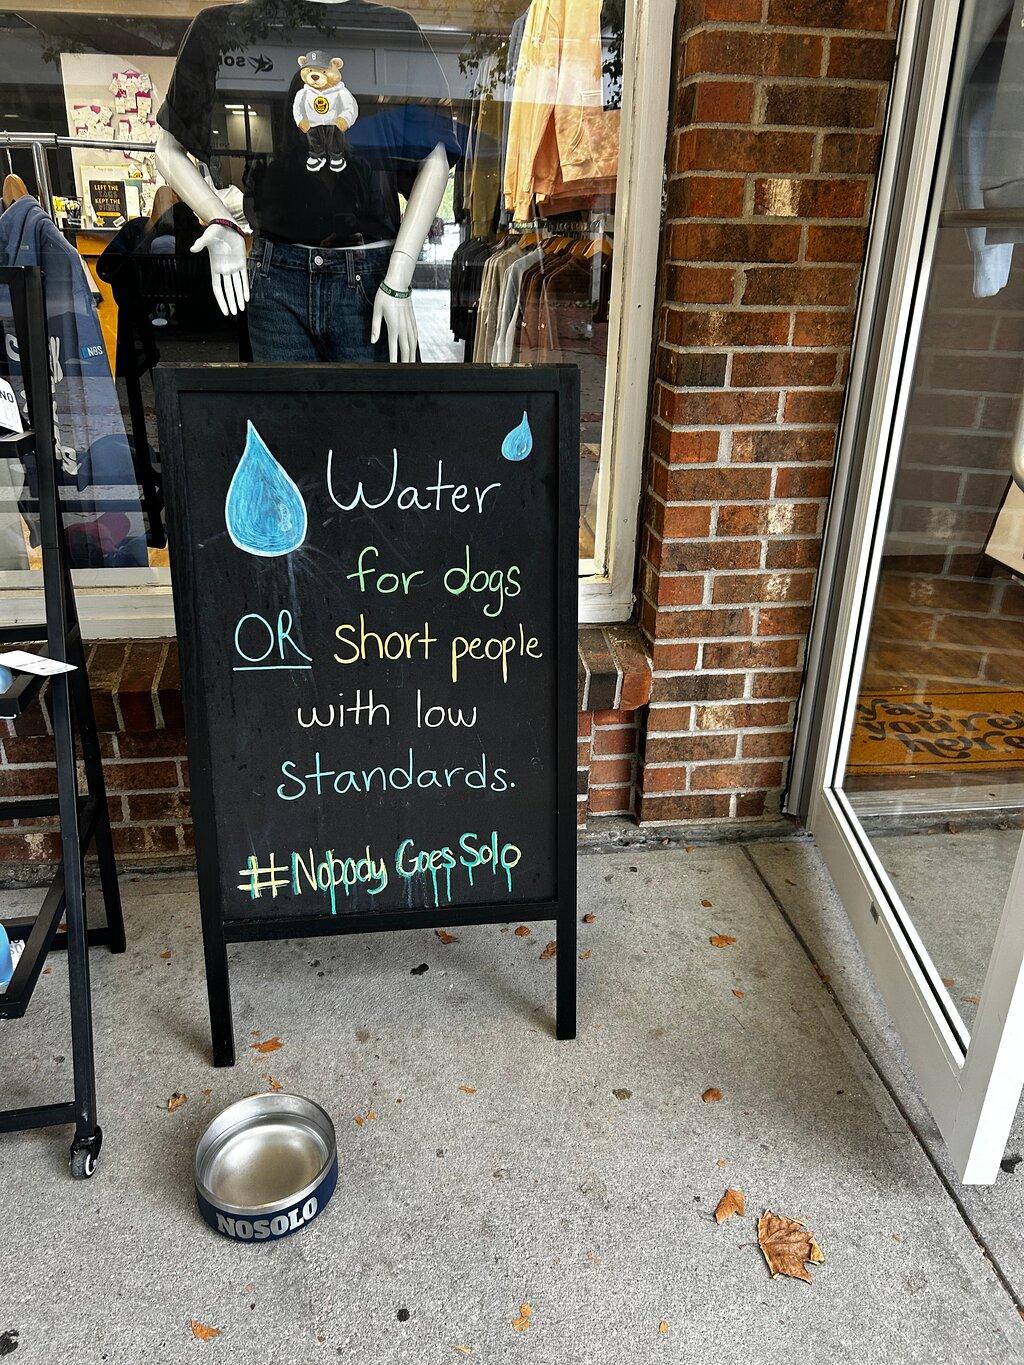 LEFT THE
KEPT THE
NBS
NO
Water
for dogs
OR short people
with low
standards.
#Nobody Goes Solo
yay
you're
here
NOSOLO